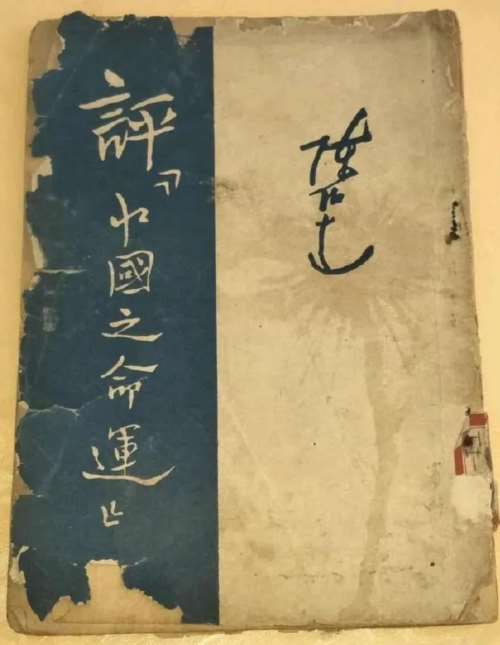 評『中國之命運』
陳伯達